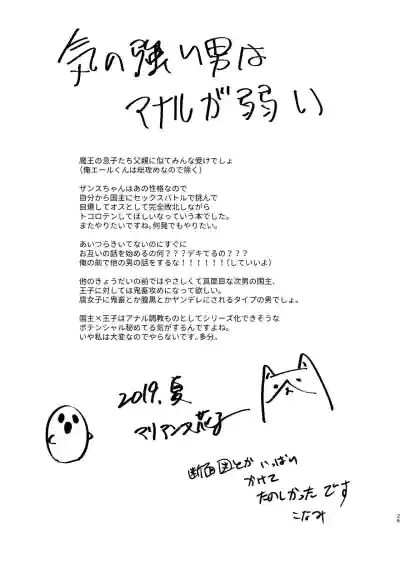 気の強い男は
アナルが弱い
魔王の息子たち父親に似てみんな受けでしょ
(俺エールくんは総攻めなので除く)
ザンスちゃんはあの性格なので
自分から国主にセックスバトルで挑んで
自爆してオスとして完全敗北しながら
トコロテンしてほしいなっていう本でした。
またやりたいですね。何発でもやりたい。
あいつらきいてないのにすぐに
お互いの話を始めるの何???デキてるの???
俺の前で他の男の話をするな!!!!!!(していいよ)
他のきょうだいの前ではやさしくて真面目な次男の国主、
王子に対しては鬼畜攻めになって欲しい。
腐女子に鬼畜とか腹黒とかヤンデレにされるタイプの男でしょ。
国主×王子はアナル調教ものとしてシリーズ化できそうな
ポテンシャル秘めてる気がするんですよね。
いや私は大変なのでやらないです。多分。
2019.夏
マリアンヌ花子
断面図とかいっぱい
かけて
たのしかったです
こなみ
29